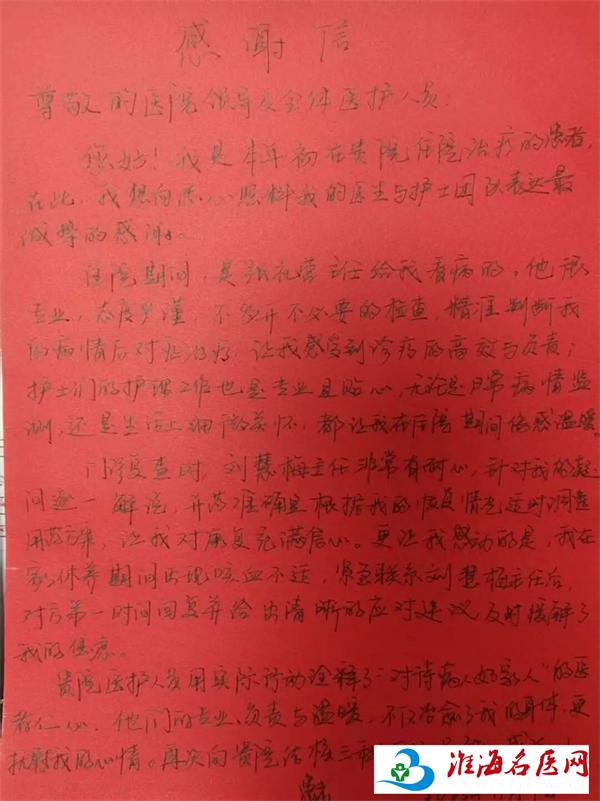 感谢信
尊敬的医院领导及全体医护人员:
您好!我是本年初在贵院住院治疗的患者,
在此,我想向悉心照料我的医生与护士团队表达最
诚挚的感谢。
住院期间,是张礼营主任给我看病的。他很
专业,态度严谨,不多开不必要的检查,精准判断我
的病情后对症治疗,让我感受到诊疗的高效与负责;
护士们的护理工作也是专业且贴心,无论是日常病情监
测,还是生活上细微关怀,都让我在住院期间倍感温暖。
门诊复查时,刘慧梅主任非常有耐心,针对我的疑
问逐一解说,并准确根据我的恢复情况适时调整
用药方案,让我对康复充满信心。更让我感动的是,我在
家休养期间出现咳血不适,紧急联系刘慧梅主任后,
对方第一时间回复并给出清晰的应对建议,及时缓解了
我的焦虑。
贵院医护人员用实际行动诠释了:对待病人如家人"的医
者仁心,他们的专业、负责与温暖,不仅治愈了我的身体,更
抚慰我的心情。再次向贵院结核三
患者
淮海名医网